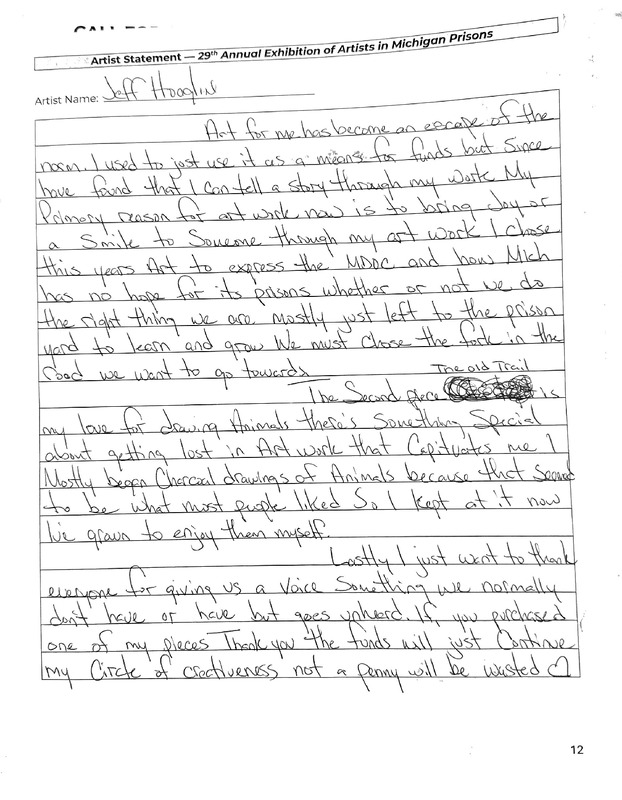 Artist Statement — 29th Annual Exhibition of Artists in Michigan Prisons
Artist Name: Jeff Hooglin
Art for me has become an escape of the
norm. I used to just use it as a means for funds but Since
have found that I can tell a story through my work My
Primary reason for art work now is to bring Joy or
a Smile to Someone through my art work I chose
this years Art to express the MDOC and how Mich
has no hope for its prisons whether or not we do
the right thing we are mostly just left to the prison
yard to learn and grow We must Chose the fork in the
road we want to go towards
The old Trail
The Second piece is
my love for drawing Animals there's Something Special
about getting lost in Art work that Capituates me I
Mostly began Charcoal drawings of Animals because that Seemed
to be what most people liked So I kept at it now
I've grown to enjoy them myself.
Lastly I just want to thank
everyone for giving us a Voice Something we normally
don't have or have but goes unheard. If you purchased
one of my pieces Thank you the funds will just Continue
my Circle of creativeness not a penny will be wasted
12